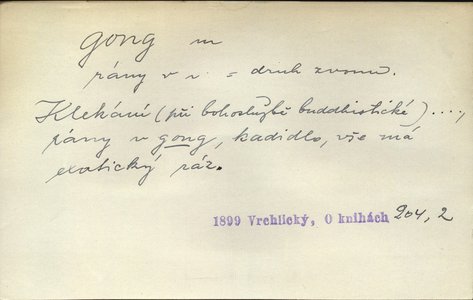 gong m
rány v n. = druh zvonu.
Klekání (při bohoslužbě buddhistické) ....,
rány v gong, kadidlo, vše má
exotický ráz.
1899 Vrchlický, O knihách 204, 2